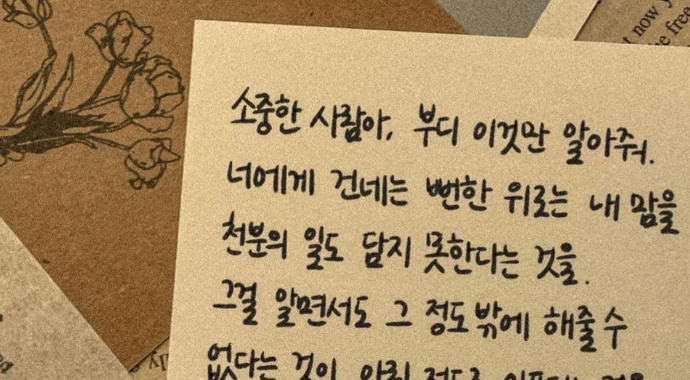 t now y
e free
소중한 사람아, 부디 이것만 알아줘.
너에게 건네는 뻔한 위로는 내 맘을
천분의 일도 담지 못한다는 것을.
그걸 알면서도 그 정도 밖에 해줄 수
없다는 것이